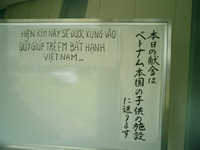 HIỆN KIM NÀY SẼ ĐƯỢC XUNG VÀO
QUỸ GIÚP TRẺ EM BẤT HẠNH
VIỆT NAM_
本日の献金は
ベトナム本国の子供の施設
に送ります